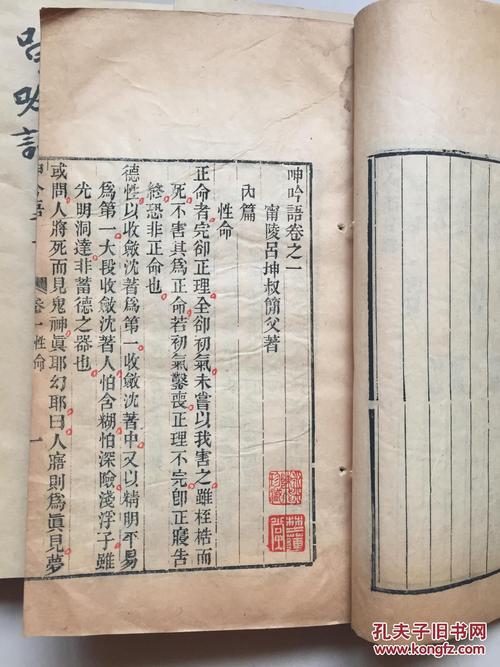 呻吟語卷之一
甯陵呂坤叔簡父著
內篇
性命
正命者完卻正理全卻初氣未嘗以我害之雖桎梏而
死不害其爲正命若初氣鑿喪正理不完卽正寢告
終恐非正命也
德性以收斂沈著爲第一收斂沈著中又以精明平易
爲第一大段收斂沈著人怕含糊怕深險淺浮子雖
光明洞達非蓄德之器也
或問人將死而見鬼神眞耶幻耶曰人寤則爲眞見夢
呻吟語
卷一 性命
一
孔夫子旧书网
kongfz.com